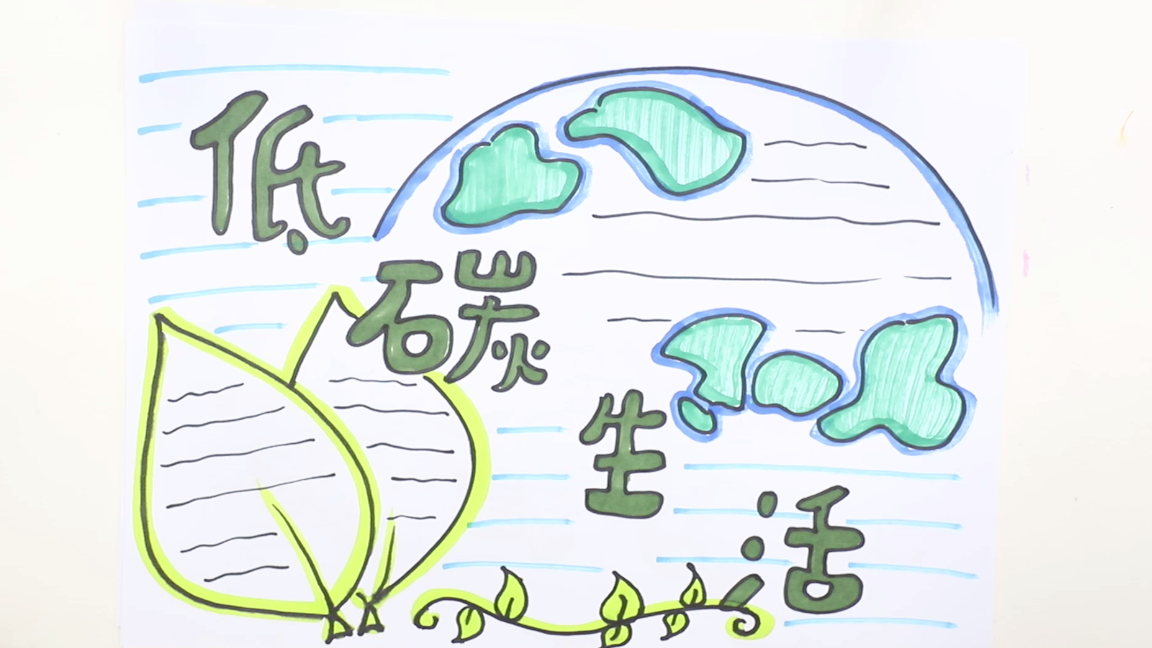 低碳生活